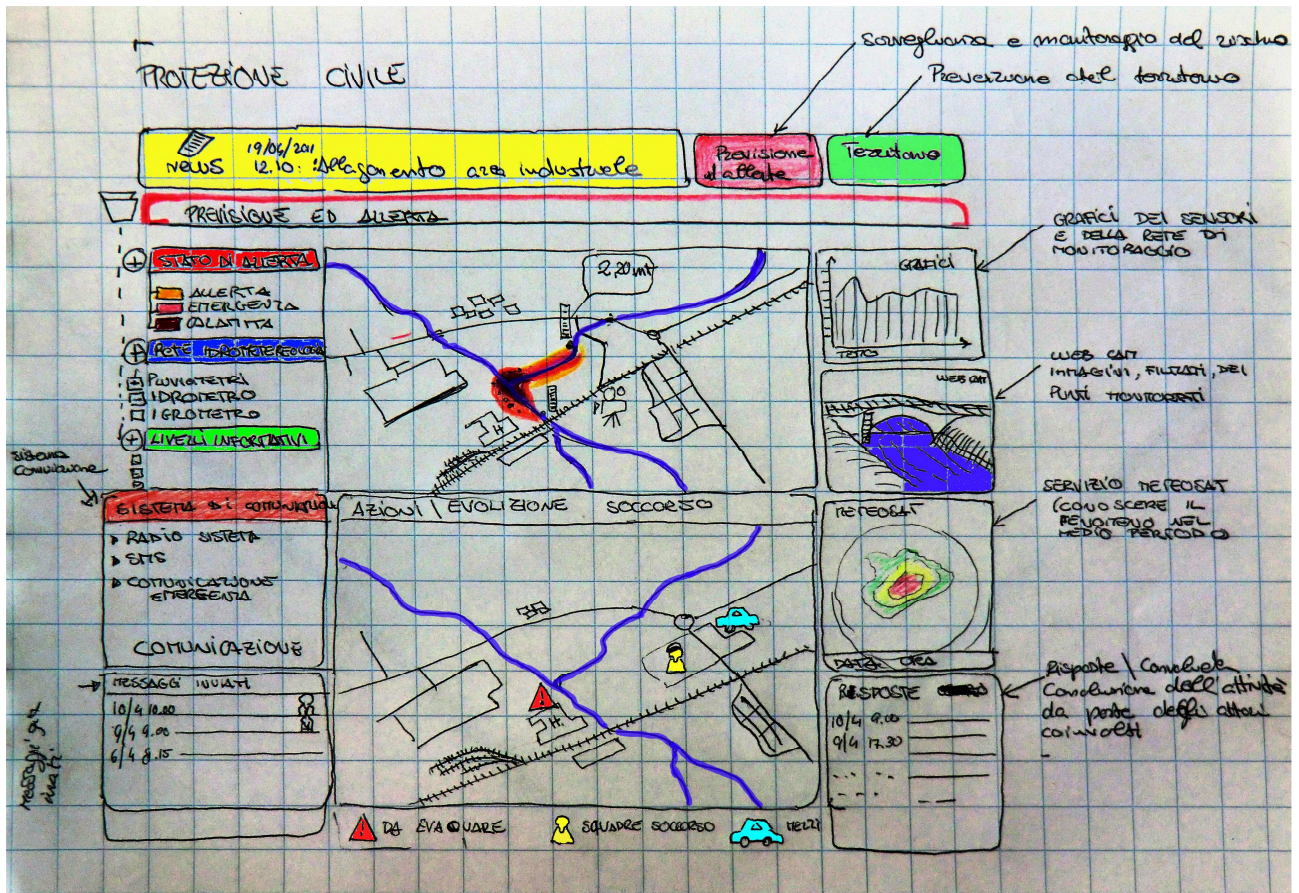 Sorveglianza e monitoraggio del rischio
Prevenzione del territorio
PROTEZIONE CIVILE
NEWS
19/04/2011
12.10: Allagamento area industriale
Previsione
ed allerta
Territorio
PREVISIONE ED ALLERTA
STATO DI ALLERTA
ALLERTA
EMERGENZA
CALAMITA
RETE IDROMETEREOLOGIA
PLUVIOMETRI
IDROMETRO
IGROMETRO
LIVELLI INFORMATIVI
2,20 mt
H
GRAFICI
GRAFICI DEI SENSORI
E DELLA RETE DI
MONITORAGGIO
WEB CAM
WEB CAM
IMMAGINI, FILTRATI, DEI
PUNTI MONITORATI
Sistema
Comunicazione
SISTEMA DI COMUNICAZIONE
RADIO SISTEMA
SMS
COMUNICAZIONE
EMERGENZA
COMUNICAZIONE
AZIONI / EVOLIZIONE SOCCORSO
H.
METEOSAT
DATA ORA
SERVIZIO METEOSAT
(CONOSCERE IL
FENOMENO NEL
MEDIO PERIODO
MESSAGGI INVIATI
10/4 10.00
9/4 9.00
6/4 8.15
Messaggi già
inviati
RISPOSTE
10/4 9.00
9/4 17.30
Risposte /
Conclusione dell'attività
da parte degli attori
coinvolti
DA EVAQUARE
SQUADRE SOCCORSO
MEZZI